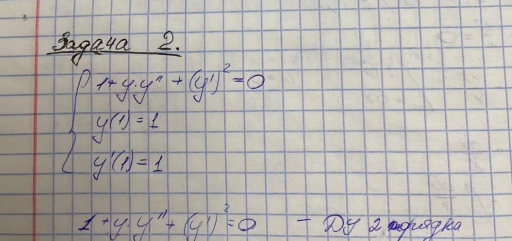 Задача 2.
1 + y·y'' + (y')² = 0
y(1) = 1
y'(1) = 1
1 + y·y'' + (y')² = 0 — ДУ 2 порядка